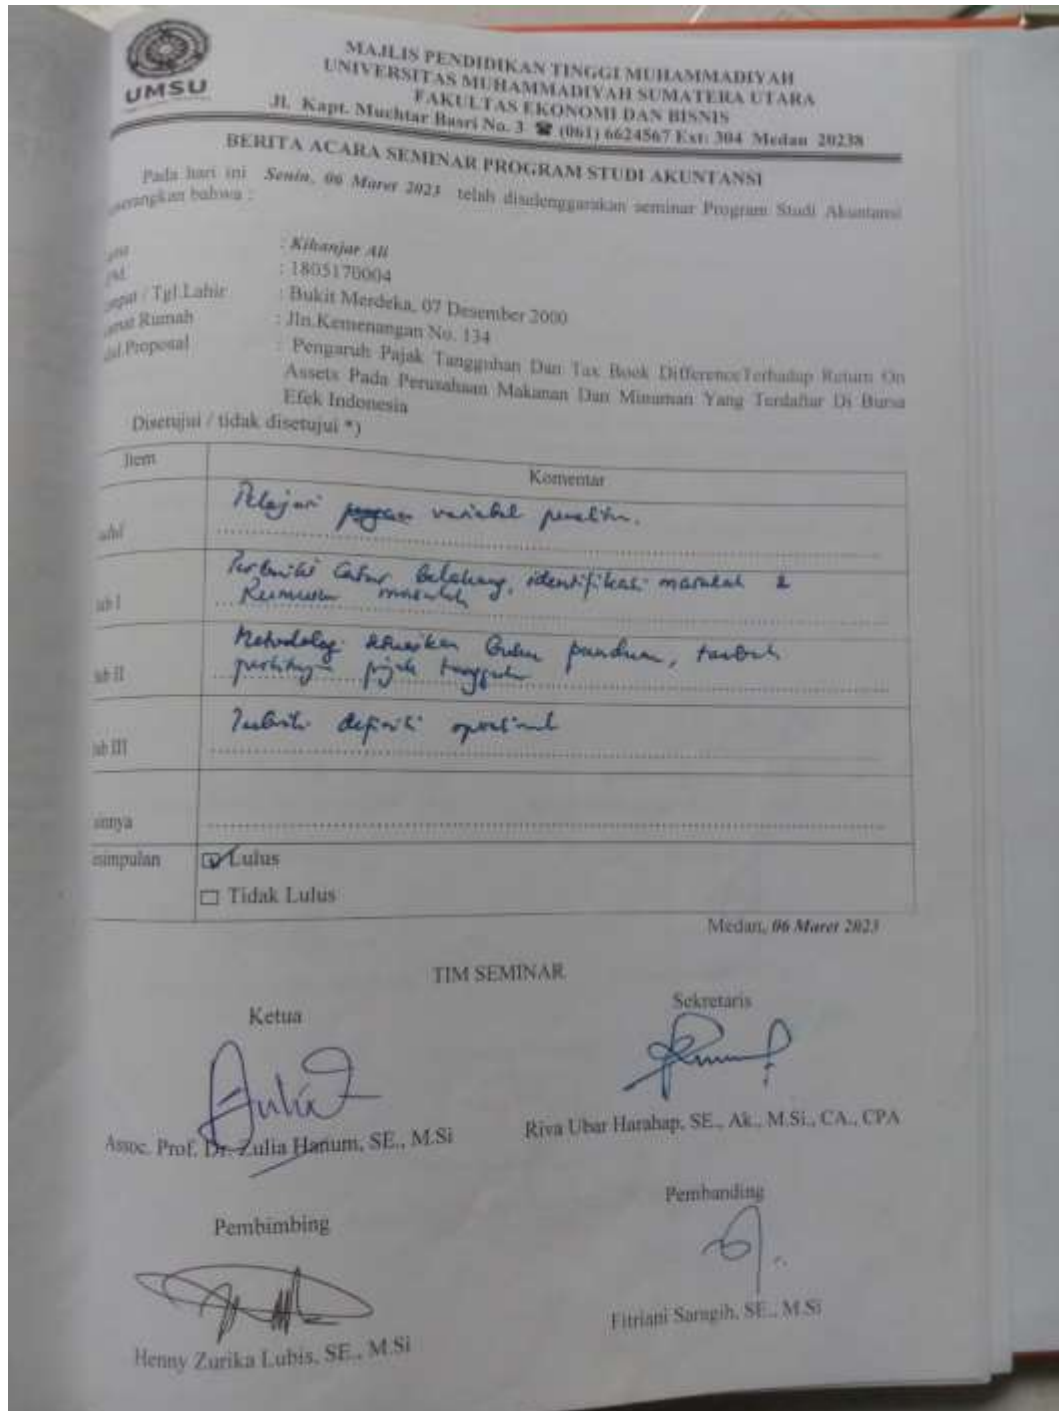 UMSU
MAJLIS PENDIDIKAN TINGGI MUHAMMADIYAH
UNIVERSITAS MUHAMMADIYAH SUMATERA UTARA
FAKULTAS EKONOMI DAN BISNIS
Jl. Kapt. Muchtar Basri No. 3 ☎ (061) 6624567 Ext: 304 Medan 20238
BERITA ACARA SEMINAR PROGRAM STUDI AKUNTANSI
Pada hari ini Senin, 06 Maret 2023 telah diselenggarakan seminar Program Studi Akuntansi
erangkan bahwa :
: Kihanjar Ali
: 1805170004
/ Tgl.Lahir : Bukit Merdeka, 07 Desember 2000
Rumah : Jln.Kemenangan No. 134
Proposal : Pengaruh Pajak Tangguhan Dan Tax Book DifferenceTerhadap Return On
Assets Pada Perusahaan Makanan Dan Minuman Yang Terdaftar Di Bursa
Efek Indonesia
Disetujui / tidak disetujui *)
Item Komentar
Pelajari variabel
ab I identifikasi masalah &
masalah
ab II panduan,
pajak
ab III definisi
innya
simpulan Lulus
Tidak Lulus
Medan, 06 Maret 2023
TIM SEMINAR
Ketua Sekretaris
Assoc. Prof. Dr. Zulia Hanum, SE., M.Si Riva Ubar Harahap, SE., Ak., M.Si., CA., CPA
Pembimbing Pembanding
Henny Zurika Lubis, SE., M.Si Fitriani Saragih, SE., M.Si